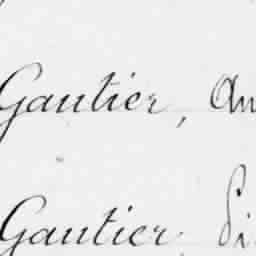 Gautier, An
Gautier, Pi